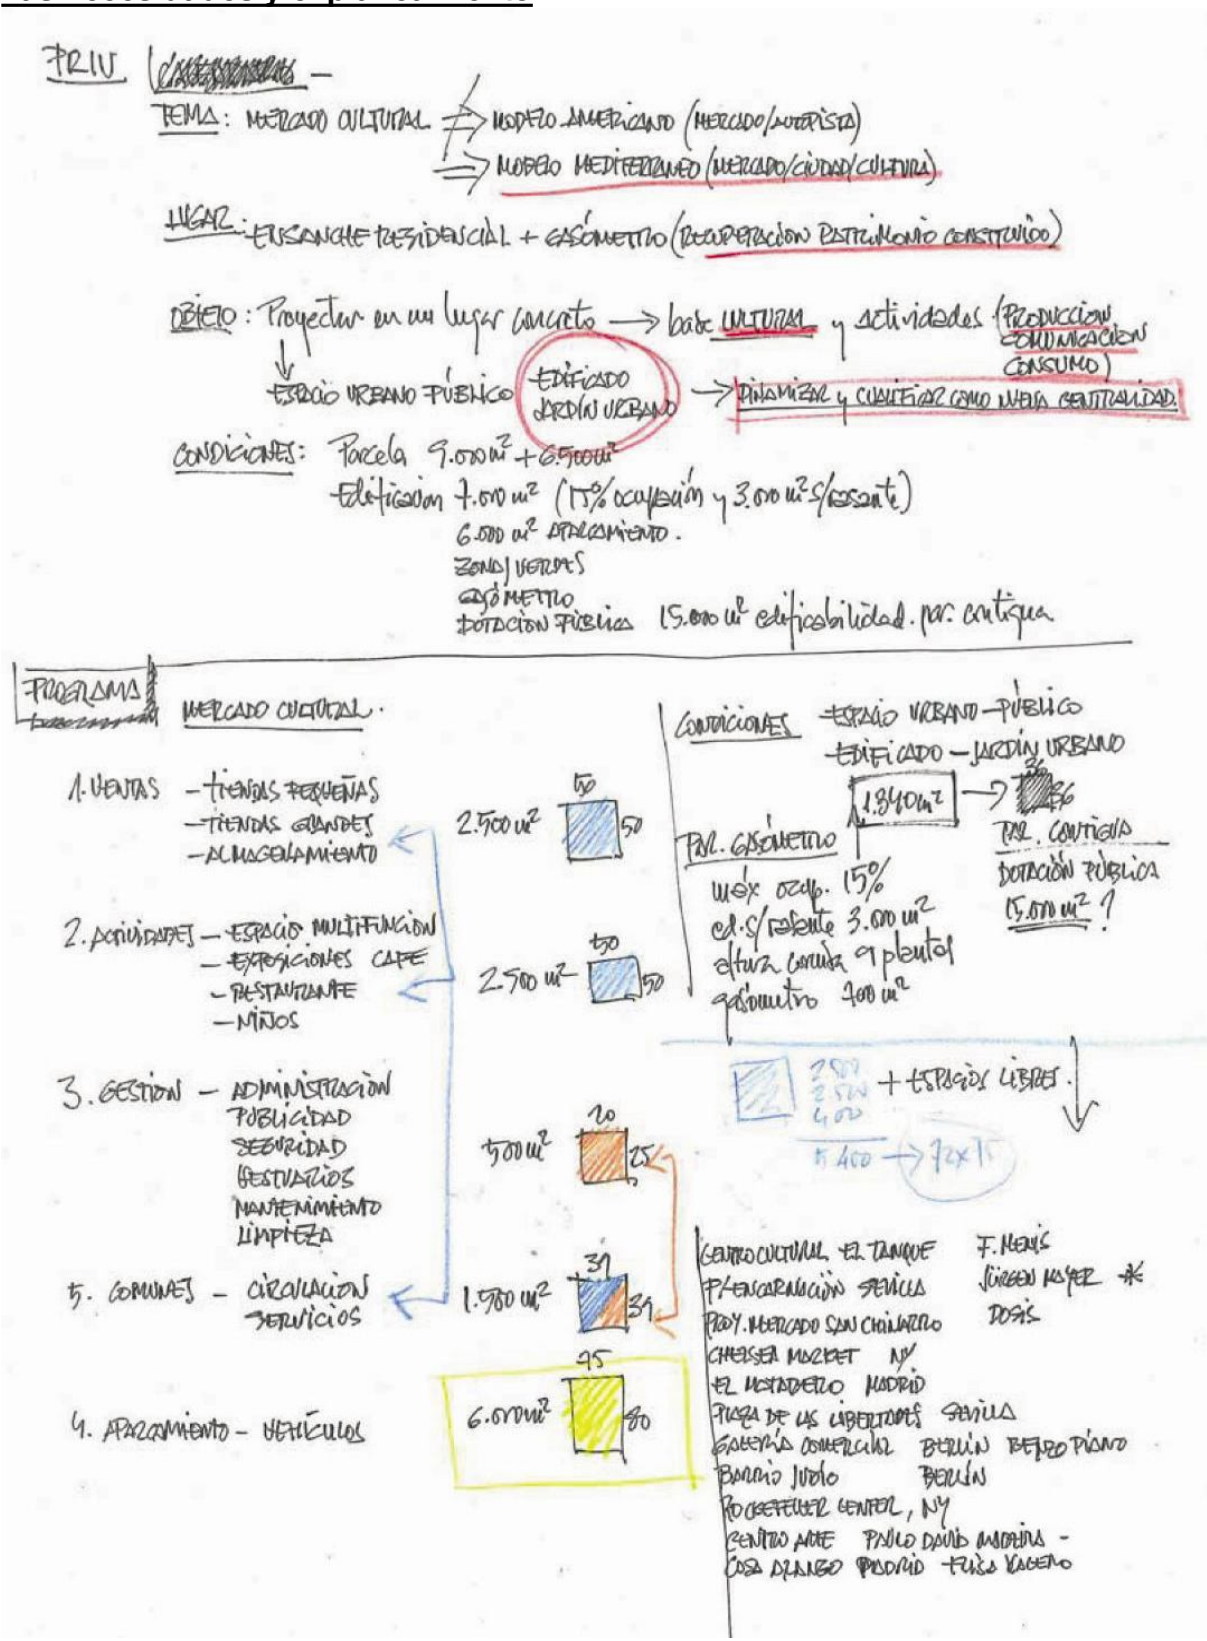 PRIV
TEMA: MERCADO CULTURAL ≠> MODELO AMERICANO (MERCADO/AUTOPISTA)
=> MODELO MEDITERRANEO (MERCADO/CIUDAD/CULTURA)
LUGAR: ENSANCHE RESIDENCIAL + GASÓMETRO (RECUPERACIÓN PATRIMONIO CONSTRUIDO)
OBJETO: Proyectar en un lugar concreto → base CULTURAL y actividades (PRODUCCION
COMUNICACION
CONSUMO)
↓
ESPACIO URBANO PÚBLICO EDIFICADO
JARDÍN URBANO → DINAMIZAR y CUALIFICAR COMO NUEVA CENTRALIDAD.
CONDICIONES: Parcela 9.000 m² + 6.500 m²
Edificación 7.000 m² (15% ocupación y 3.000 m² s/rasante)
6.000 m² APARCAMIENTO.
ZONAS VERDES
GASÓMETRO
DOTACIÓN PÚBLICA 15.000 m² edificabilidad. par. contigua
PROGRAMA
MERCADO CULTURAL.
1. VENTAS - TIENDAS PEQUEÑAS
- TIENDAS GRANDES
- ALMACENAMIENTO
2.500 m² 50 50
2. ACTIVIDADES - ESPACIO MULTIFUNCIÓN
- EXPOSICIONES CAFE
- RESTAURANTE
- NIÑOS
2.500 m² 50 50
3. GESTION - ADMINISTRACIÓN
PUBLICIDAD
SEGURIDAD
VESTUARIOS
MANTENIMIENTO
LIMPIEZA
500 m² 20 25
5. COMUNES - CIRCULACION
SERVICIOS
1.500 m² 39 39
4. APARCAMIENTO - VEHÍCULOS
6.000 m² 75 80
CONDICIONES ESPACIO URBANO-PÚBLICO
EDIFICADO - JARDÍN URBANO
1.340 m² → 36 36
PAR. GASÓMETRO
máx ocup. 15%
ed. s/rasante 3.000 m²
altura cornisa 9 plantas
gasómetro 700 m²
PAR. CONTIGUA
DOTACIÓN PÚBLICA
15.000 m² ?
2.500
2.500
400
5.400 → 72x75
+ ESPACIOS LIBRES.
CENTRO CULTURAL EL TANQUE F. MENIS
P/ENCARNACIÓN SEVILLA JÜRGEN MAYER *
PROY. MERCADO SAN CHINARRO DOSIS
CHELSEA MARKET NY
EL MATADERO MADRID
PLAZA DE LAS LIBERTADES SEVILLA
GALERÍA COMERCIAL BERLÍN RENZO PIANO
BARRIO JUDIO BERLÍN
ROCKEFELLER CENTER, NY
CENTRO ARTE PAULO DAVID MADEIRA -
COSA MADRID